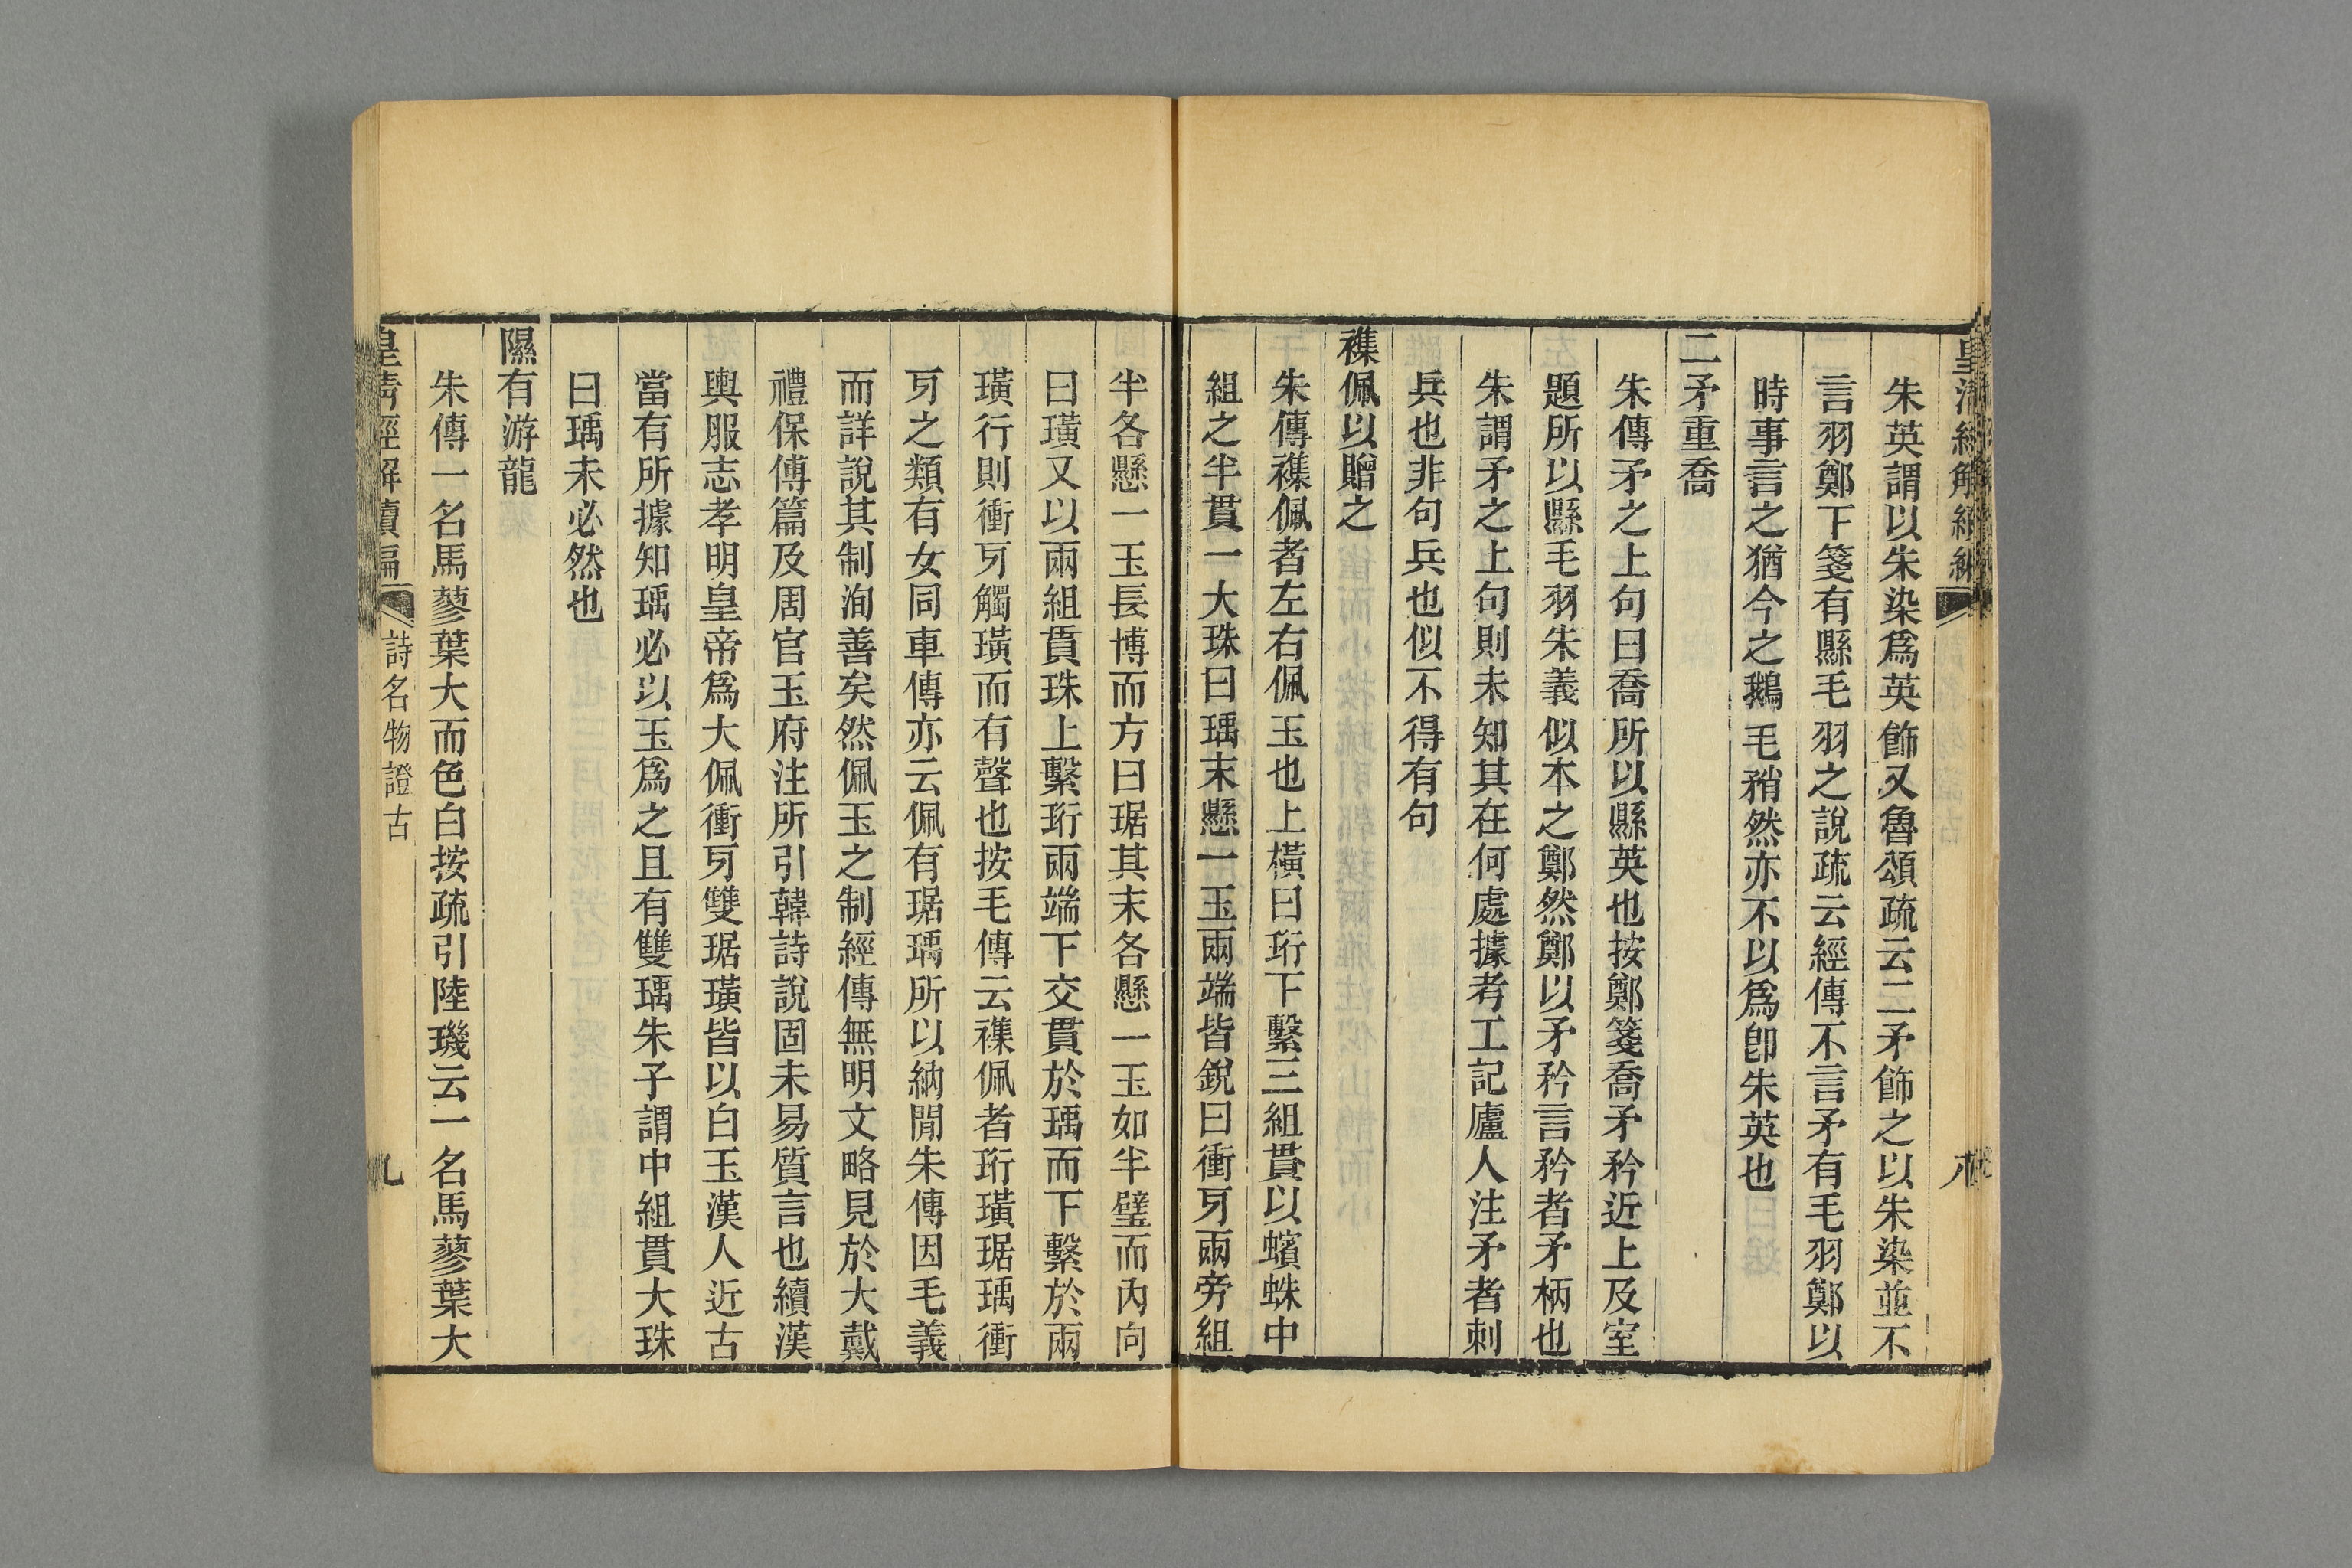 朱英謂以朱染爲英飾又魯頌疏云二矛飾之以朱染並不
言羽鄭下箋有縣毛羽之說疏云經傳不言矛有毛羽鄭以
時事言之猶今之鵝毛矟然亦不以爲卽朱英也
二矛重喬
朱傳矛之上句曰喬所以縣英也按鄭箋喬矛矜近上及室
題所以縣毛羽朱義似本之鄭然鄭以矛矜言矜者矛柄也
朱謂矛之上句則未知其在何處據考工記廬人注矛者刺
兵也非句兵也似不得有句
襍佩以贈之
朱傳襍佩者左右佩玉也上橫曰珩下繫三組貫以蠙蛛中
組之半貫一大珠曰瑀末懸一玉兩端皆銳曰衝牙兩旁組
半各懸一玉長博而方曰琚其末各懸一玉如半璧而內向
曰璜又以兩組貫珠上繫珩兩端下交貫於瑀而下繫於兩
璜行則衝牙觸璜而有聲也按毛傳云襍佩者珩璜琚瑀衝
牙之類有女同車傳亦云佩有琚瑀所以納閒朱傳因毛義
而詳說其制洵善矣然佩玉之制經傳無明文略見於大戴
禮保傅篇及周官玉府注所引韓詩說固未易質言也續漢
輿服志孝明皇帝爲大佩衝牙雙琚璜皆以白玉漢人近古
當有所據知瑀必以玉爲之且有雙瑀朱子謂中組貫大珠
曰瑀未必然也
隰有游龍
朱傳一名馬蓼葉大而色白按疏引陸璣云一名馬蓼葉大
皇清經解續編 詩名物證古 九